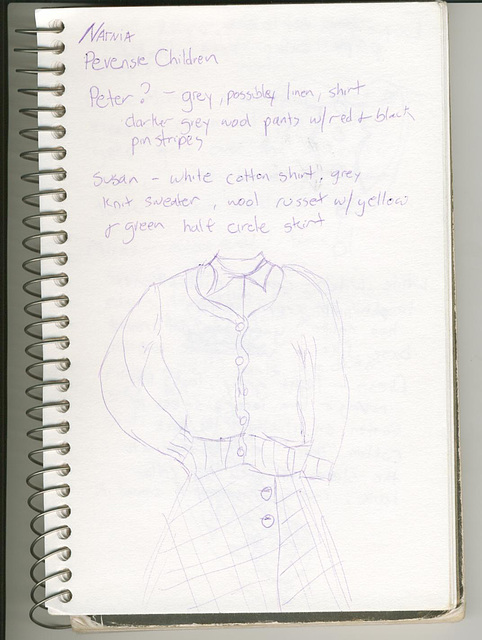 Narnia
Pevensie Children
Peter? - grey, possibley linen, shirt
darker grey wool pants w/ red & black
pinstripes
Susan - white cotton shirt, grey
knit sweater, wool russet w/ yellow
& green half circle skirt